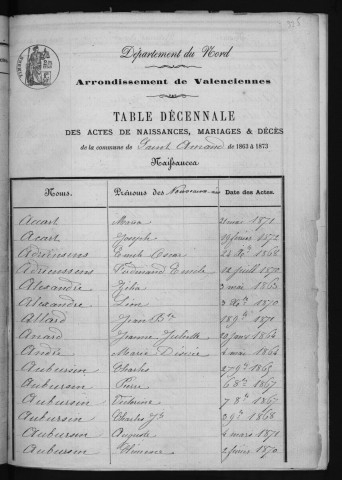 Département du Nord
Arrondissement de Valenciennes
TABLE DÉCENNALE
DES ACTES DE NAISSANCES, MARIAGES & DÉCÈS
de la commune de Saint Amand de 1863 à 1873
Naissances
Noms. Prénoms des Nouveaux-nés Date des Actes.
Accart Maria 21 mai 1871
Acart Joseph 19 février 1872
Adriensens Emile Oscar 1868
Adrienssens Ferdinand Emile 12 Juill 1870
Alexandre Zélia 3 mai 1863
Alexandre Léon 3 Xbre 1870
Allard Jean Bte 18 9bre 1871
Anard Jeanne Juliette 20 janv 1864
André Marie Désirée 4 mai 1864
Aubursin Charles 27 9bre 1865
Aubursin Pierre 6 8bre 1867
Aubursin Victorine 7 8bre 1867
Aubursin Charles Jh 2 9bre 1868
Aubursin Auguste 4 mars 1871
Aubursin 2 févier 1870